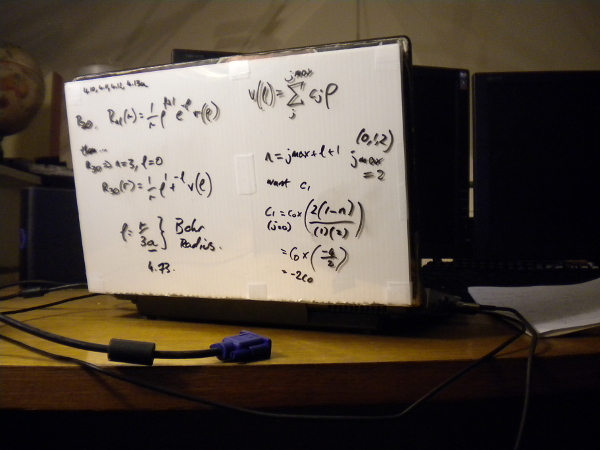 4.10, 4.11, 4.12, 4.13a
R30. Rnl(r) = 1/r ρ^(l+1) e^-ρ v(ρ)
then...
R30 ⇒ n=3, l=0
R30(r) = 1/r ρ^1 + ^-ρ v(ρ)
ρ = r/3a } Bohr Radius.
4.73.
v(ρ) = Σ_j^jmax cjρ
n = jmax + l + 1
(0,1,2)
jmax = 2
want c1
c1 = c0 × (2(1-n)/(1)(2))
(j=0)
= c0 × (-4/2)
= -2c0